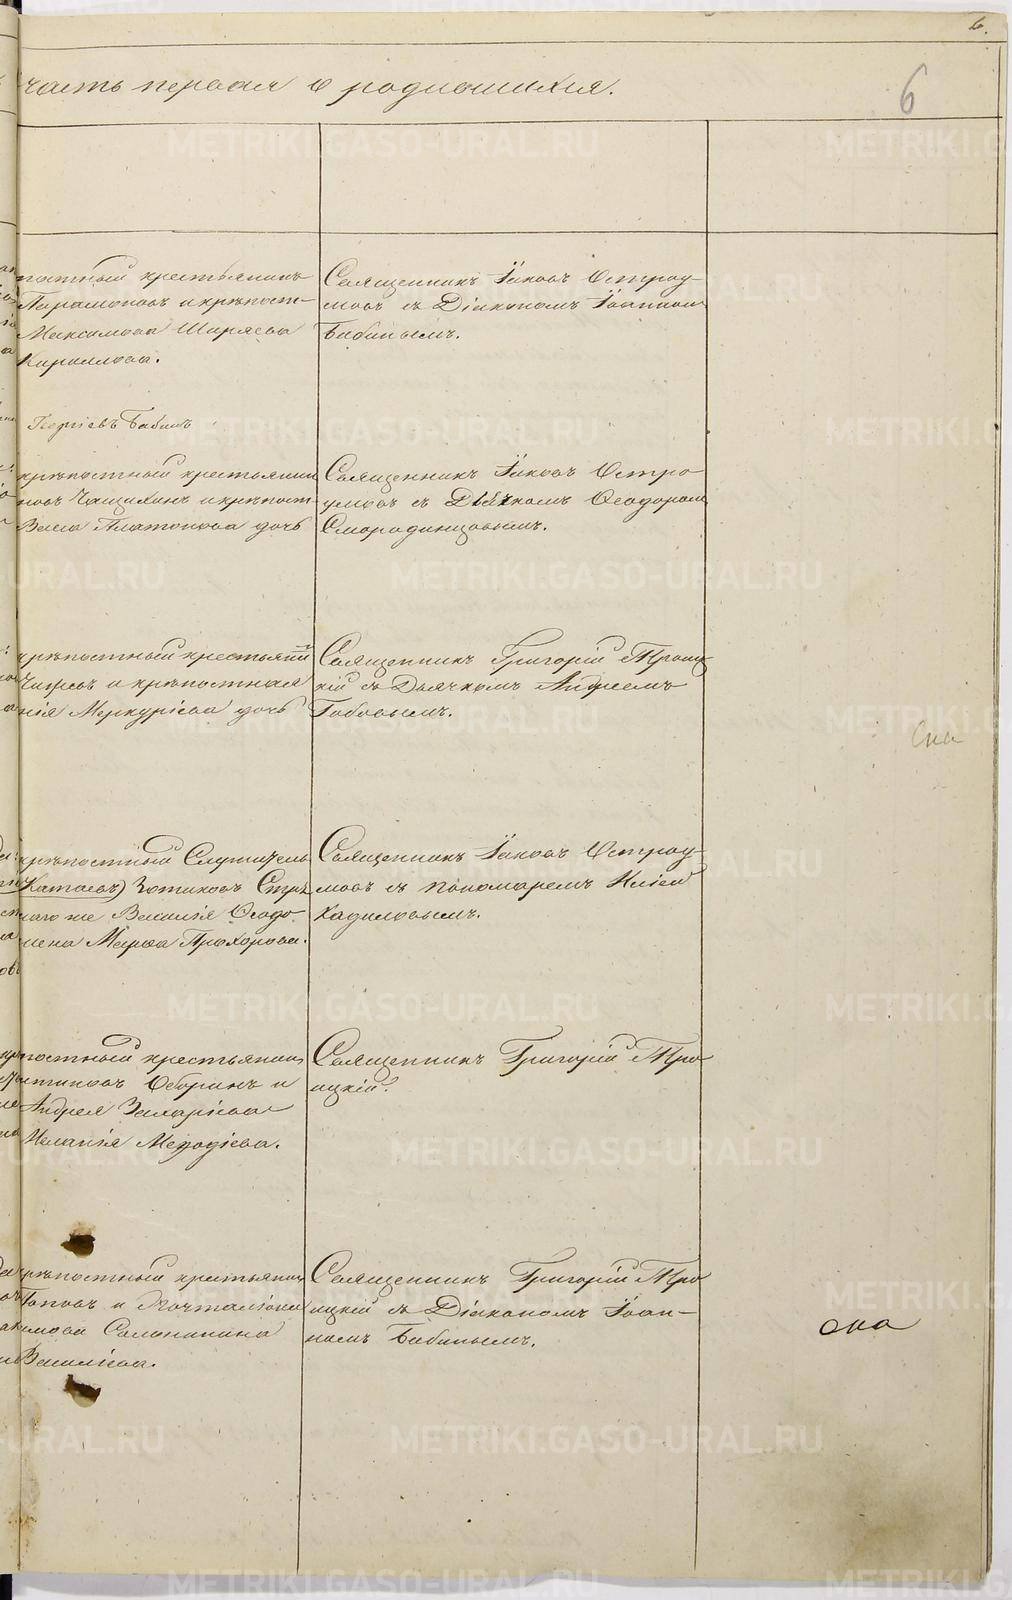 6.
6
часть первая о родившихся.
постный крестьянинъ
Парамоновъ и крѣпост-
Максимова Ширяева
Кириллова.
Священникъ Іаковъ Остроу-
мовъ съ Діакономъ Іоанномъ
Бабинымъ.
Георгіевъ Бабинъ
крѣпостный крестьянинъ
новъ Чащихинъ и крѣпост-
Васса Платонова дочь
Священникъ Іаковъ Остро-
умовъ съ Дьячкомъ Ѳеодоромъ
Смородинцовымъ.
крѣпостный крестьянинъ
и крѣпостная
нія Меркуріева дочь
Священникъ Григорій Троиц-
кій съ Дьячкомъ Андреемъ
Бабовымъ.
Ска
крѣпостный Служитель
Катаевъ) Зотиковъ
гоже Василія Ѳеодо-
жена Марѳа Прохорова.
Священникъ Іаковъ Остроу-
мовъ съ пономаремъ Иліею
Кадиловымъ.
постный крестьянинъ
и
Андрея Захаріева
Меланія Меѳодіева.
Священникъ Григорій Тро-
ицкій.
крѣпостный крестьянинъ
Поповъ и
Саломанина
Василіева.
Священникъ Григорій Тро-
ицкій съ Діакономъ Іоан-
номъ Бабинымъ.
ска
METRIKI.GASO-URAL.RU